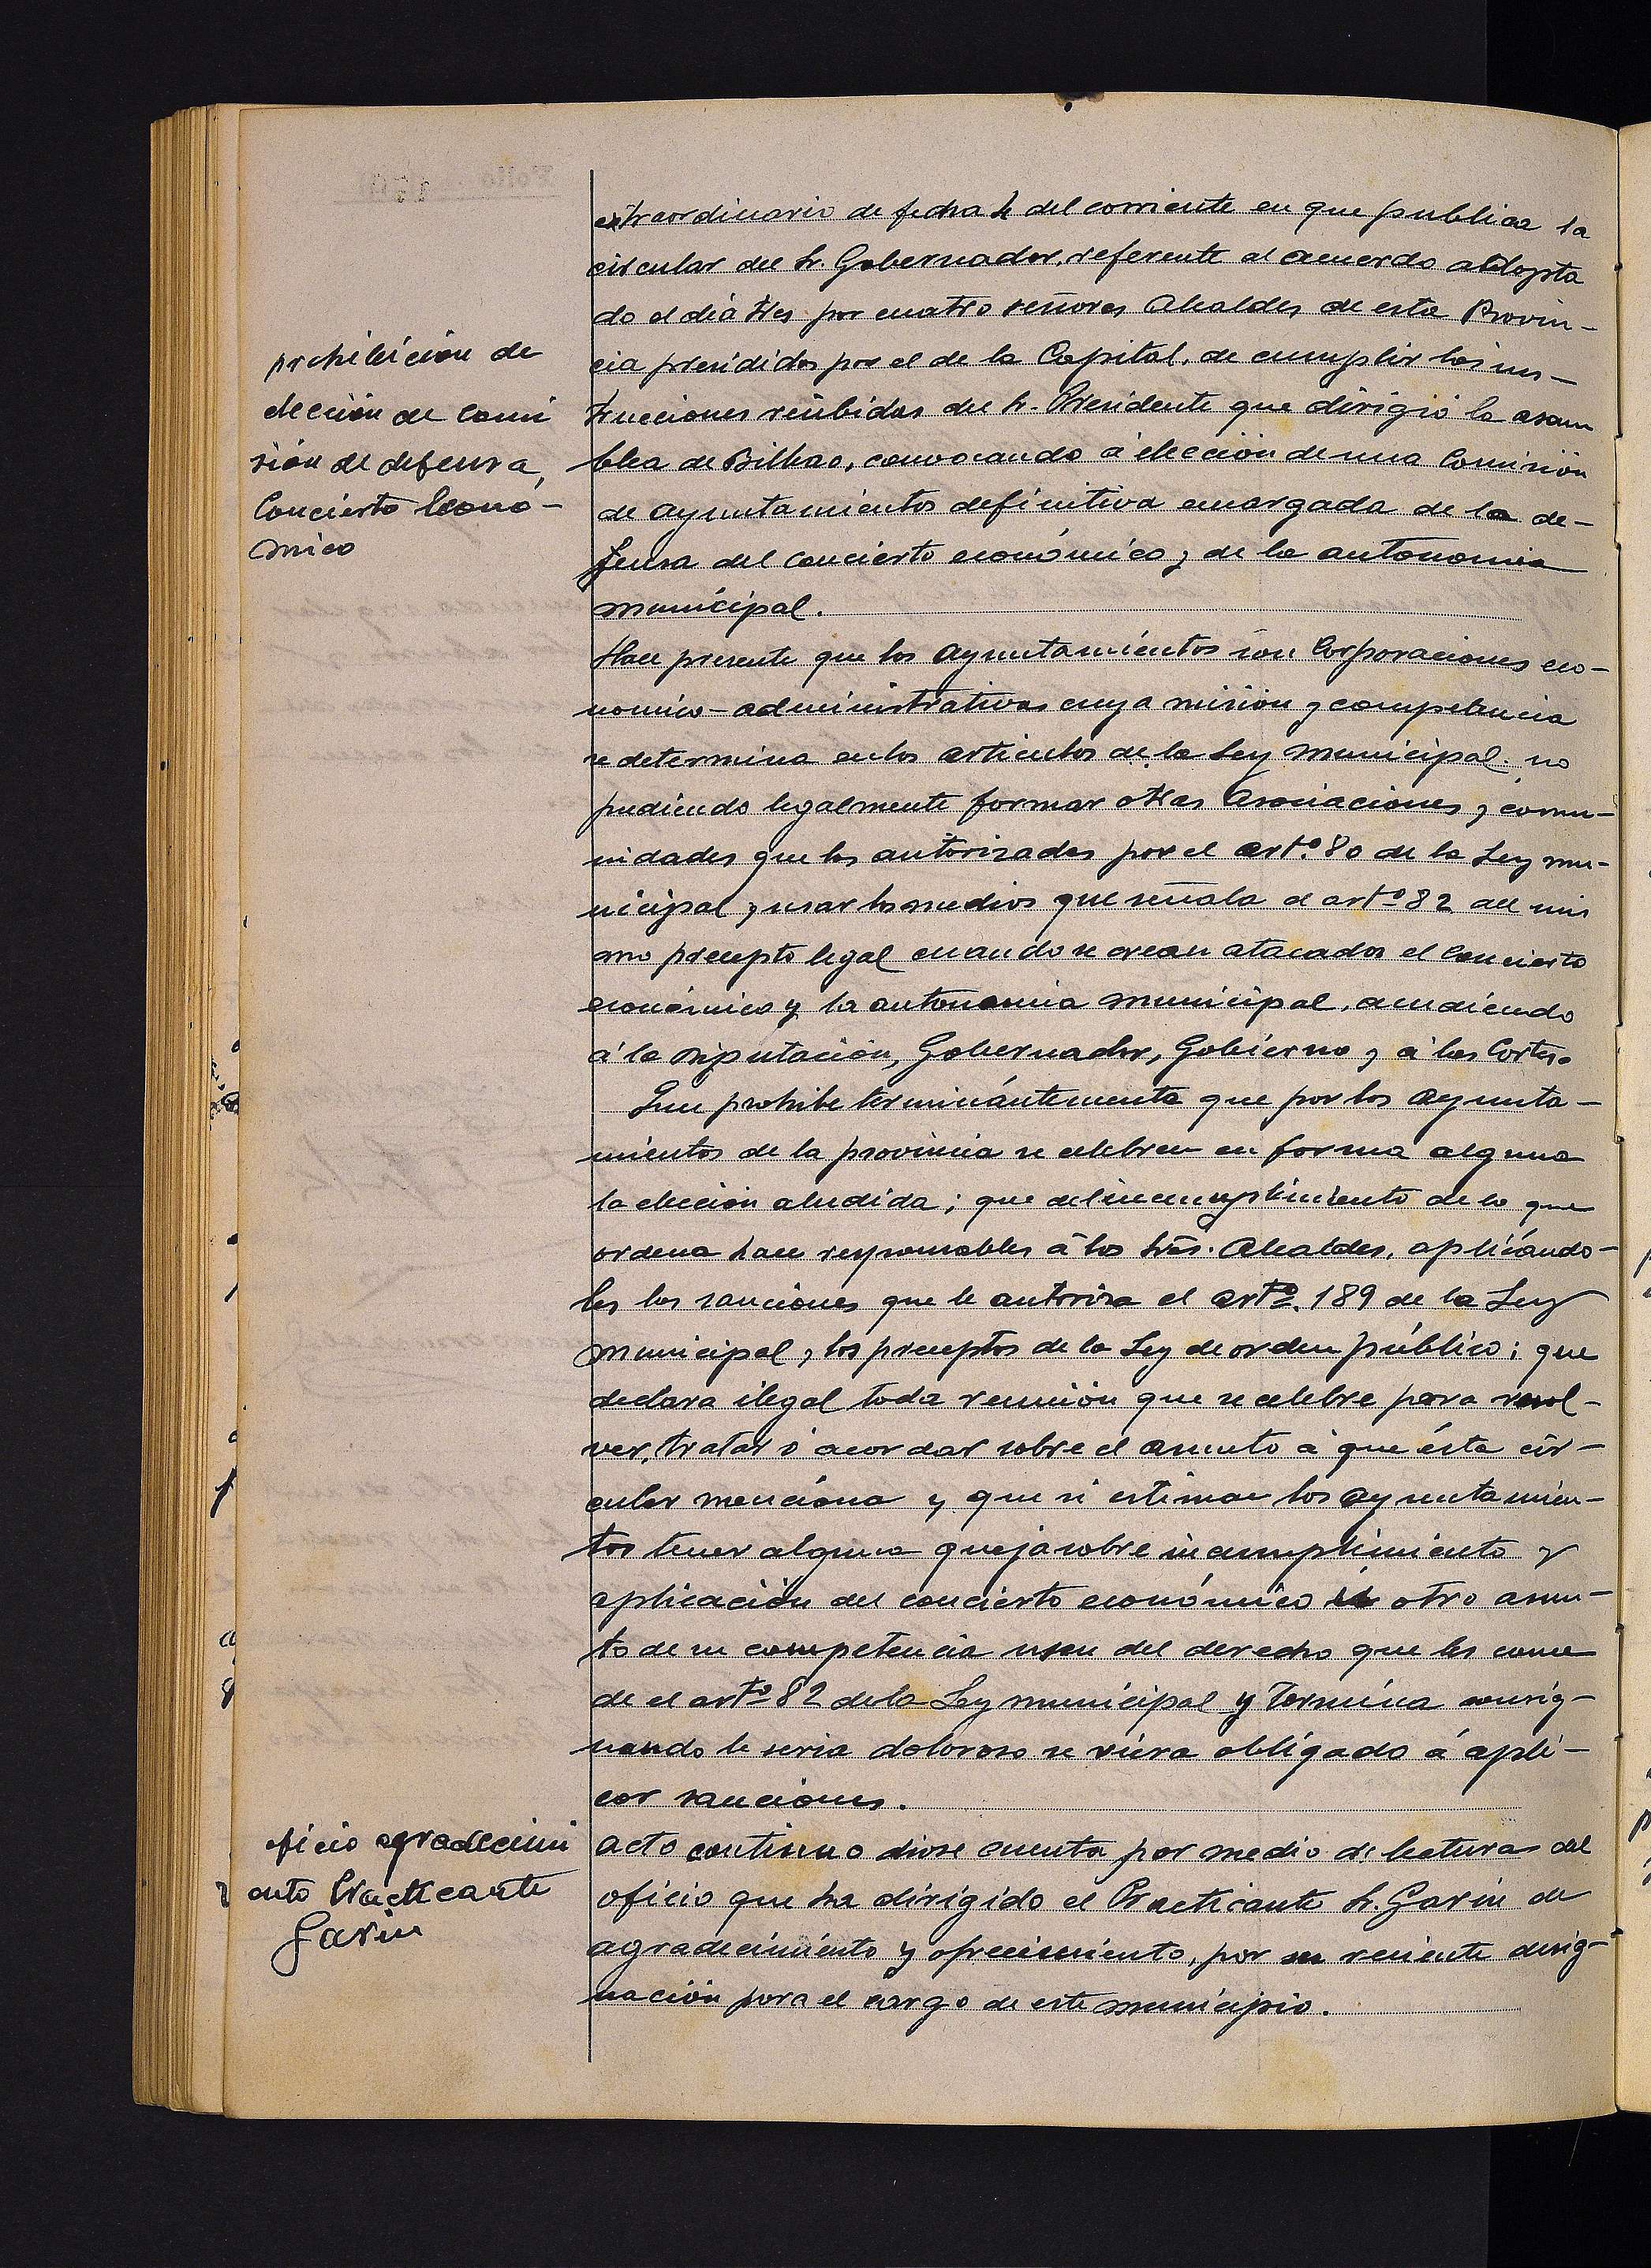 extraordinario de fecha 4 del corriente en que publica la
circular del Sr. Gobernador, referente al acuerdo addopta
do el dia tres por cuatro señores Alcaldes de esta Provin-
cia presididos por el de la Capital, de cumplir las ins-
trucciones recibidas del Sr. Presidente que dirigió la asam
blea de Bilbao, convocando á elección de una Comisión
de ayuntamientos definitiva encargada de la de-
fensa del concierto económico y de la autonomia
municipal.
prohibición de
elección de comi
sión de defensa
Concierto Econó-
mico
Hace presente que los ayuntamientos son Corporaciones eco-
nomico-administrativas cuya misión y competencia
se determina en los articulos de la Ley municipal. no
pudiendo legalmente formar otras Asociaciones y comu-
nidades que las autorizadas por el artº 80 de la Ley mu-
nicipal y usar los medios que señala el artº 82 del mis
mo precepto legal cuando se crean atacados el concierto
económico y la autonomia municipal, acudiendo
á la Diputación, Gobernador, Gobierno y á las Cortes.
Que prohibe terminántemente que por los ayunta-
mientos de la provincia se celebren en forma alguna
la elección aludida; que del incumplimiento de lo que
ordena hace responsables á los Srs. Alcaldes, aplicando-
les las sanciones que le autoriza el artº. 189 de la Ley
municipal y los preceptos de la Ley de orden público; que
declara ilegal toda reunión que se celebre para resol-
ver, tratar ó acordar sobre el asunto á que ésta cir-
cular menciona y que si estiman los ayuntamien-
tos tener alguna queja sobre incumplimiento y
aplicación del concierto económico ú otro asun-
to de su competencia usen del derecho que les conce
de el artº 82 de la Ley municipal y termina consig-
nando le seria doloroso se viera obligado á apli-
car sanciones.
oficio agradecimi
ento Practicante
Garin
acto continuo diose cuenta por medio de lecturas del
oficio que ha dirigido el Practicante Sr. Garin de
agradecimiento y ofrecimiento, por su reciente desig-
nación para el cargo de este municipio.